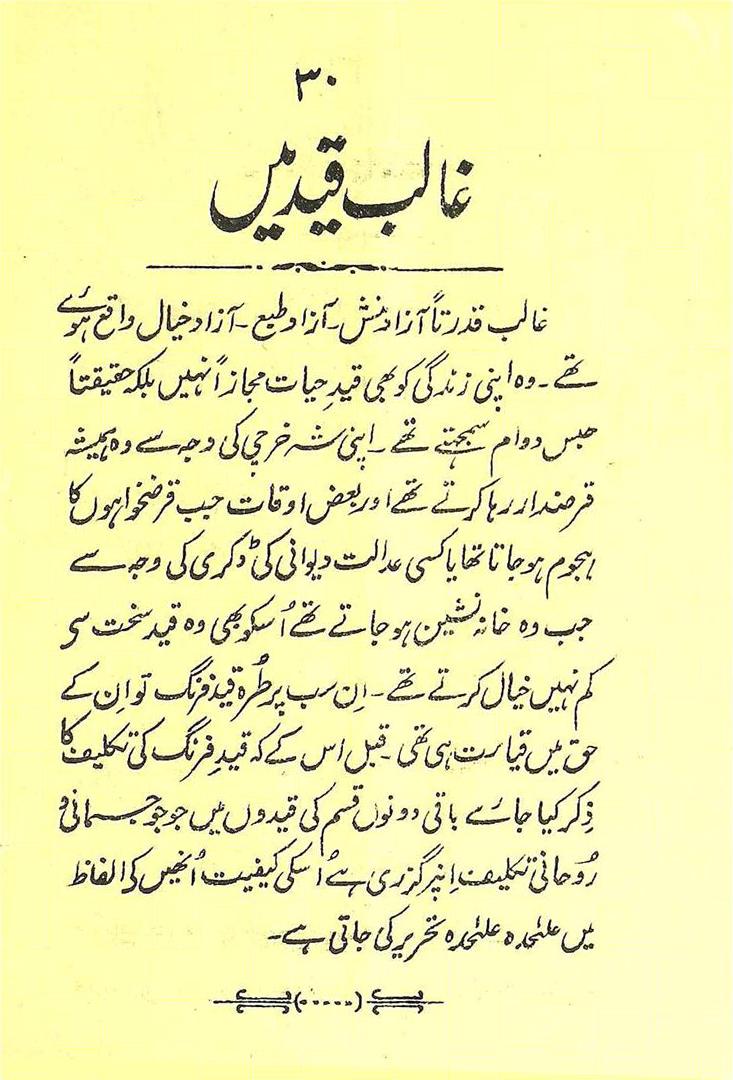 ۳۰
غالب قید میں
غالب قدرتاً آزاد منش۔ آزاد طبع۔ آزاد خیال واقع ہوئے
تھے۔ وہ اپنی زندگی کو بھی قیدِ حیات مجازاً نہیں بلکہ حقیقتاً
حبس دوام سمجھتے تھے۔ اپنی شہ خرچی کی وجہ سے وہ ہمیشہ
قرضدار رہا کرتے تھے اور بعض اوقات جب قرضخواہوں کا
ہجوم ہو جاتا تھا یا کسی عدالت دیوانی کی ڈگری کی وجہ سے
جب وہ خانہ نشین ہو جاتے تھے اُسکو بھی وہ قید سخت سی
کم نہیں خیال کرتے تھے۔ اِن سب پر طُرہ قید فرنگ تو اِن کے
حق میں قیامت ہی تھی۔ قبل اس کے کہ قیدِ فرنگ کی تکلیف کا
ذِکر کیا جائے باقی دونوں قسم کی قیدوں میں جو جو جسمانی و
رُوحانی تکلیف اِنپر گزری ہے اُسکی کیفیت اُنھیں کی الفاظ
میں علٰحدہ علٰحدہ تحریر کی جاتی ہے۔